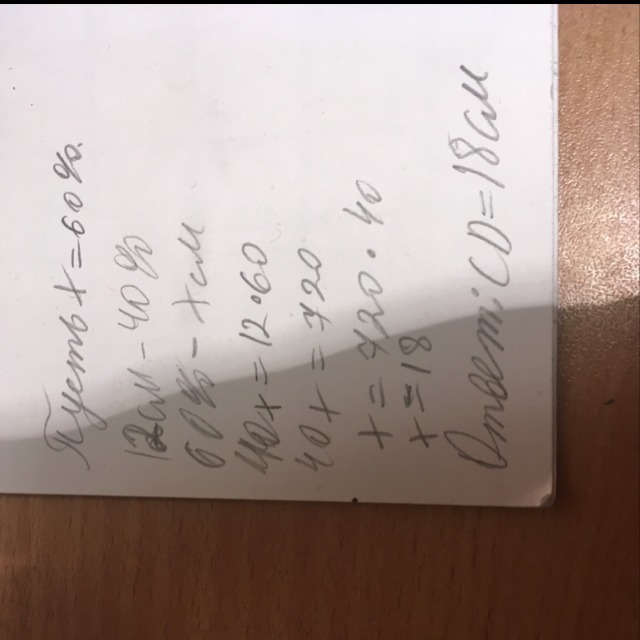 Пусть x = 60%.
12см - 40%
60% - xсм
40x = 12•60
40x = 720
x = 720•40
x = 18
Ответ: CD = 18см